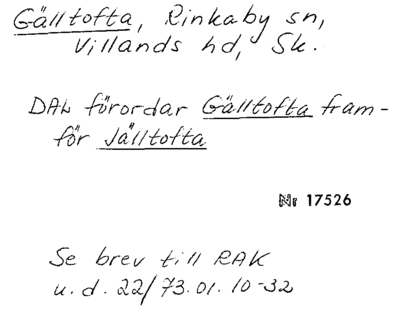 Gälltofta, Rinkaby sn,
Villands hd, Sk.
DAL förordar Gälltofta fram-
för Jälltofta
Nr 17526
Se brev till RAK
u.d. 22/73.01.10-32